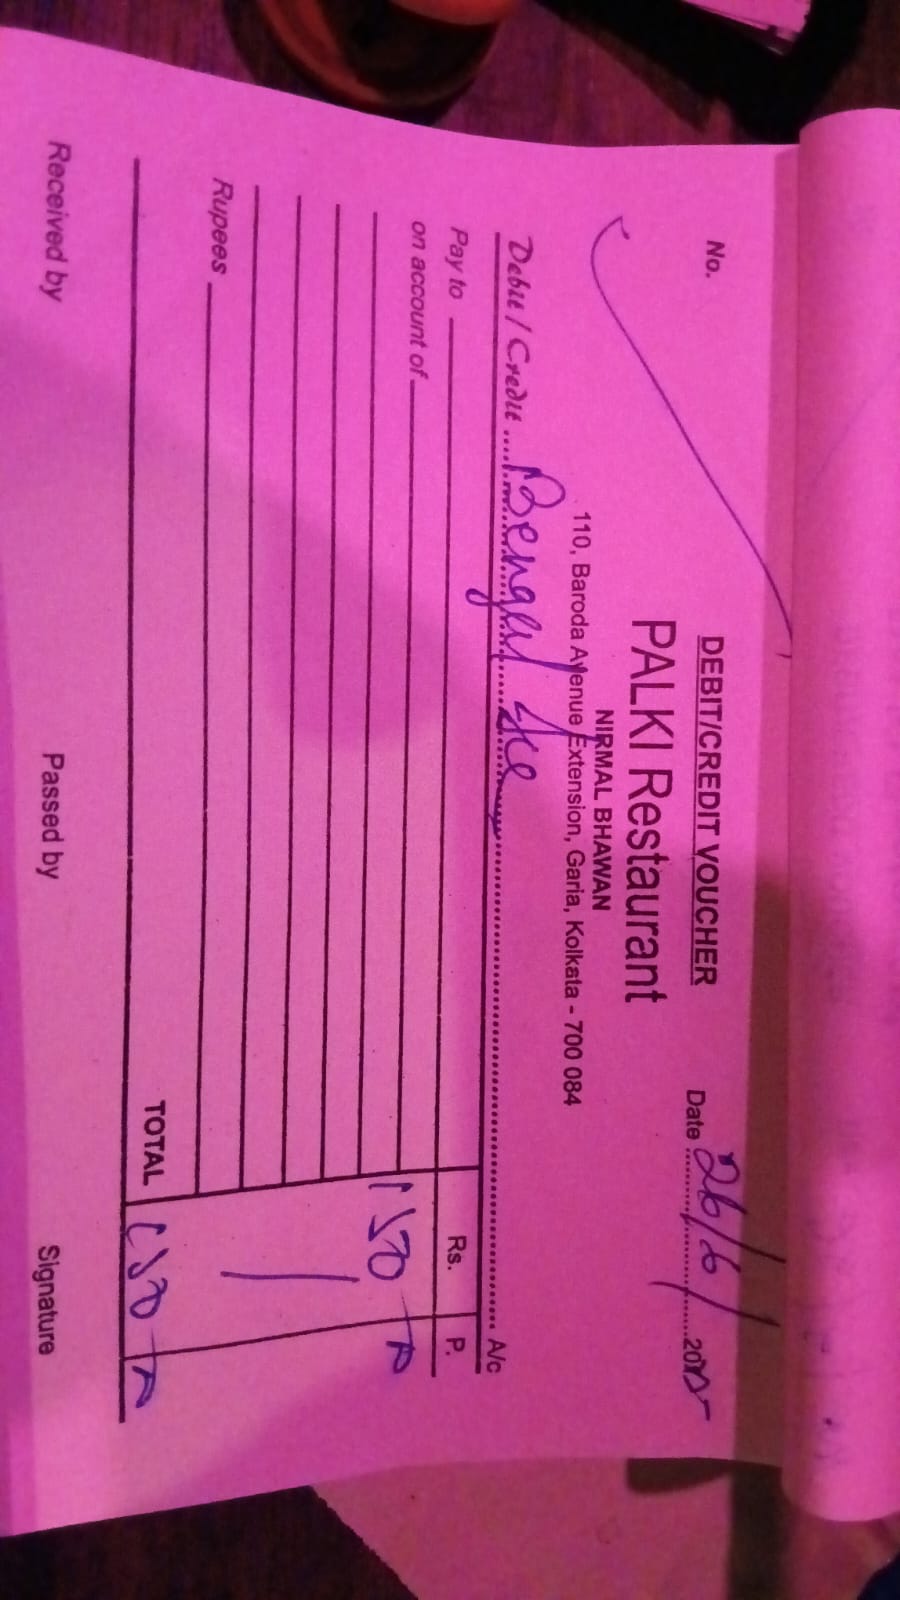 No.
DEBIT/CREDIT VOUCHER
Date 26/6/ 2025
PALKI Restaurant
NIRMAL BHAWAN
110, Baroda Avenue Extension, Garia, Kolkata - 700 084
Debit / Credit Bengal Ice A/c
Pay to Rs. P.
on account of
Rupees
TOTAL
Received by Passed by Signature